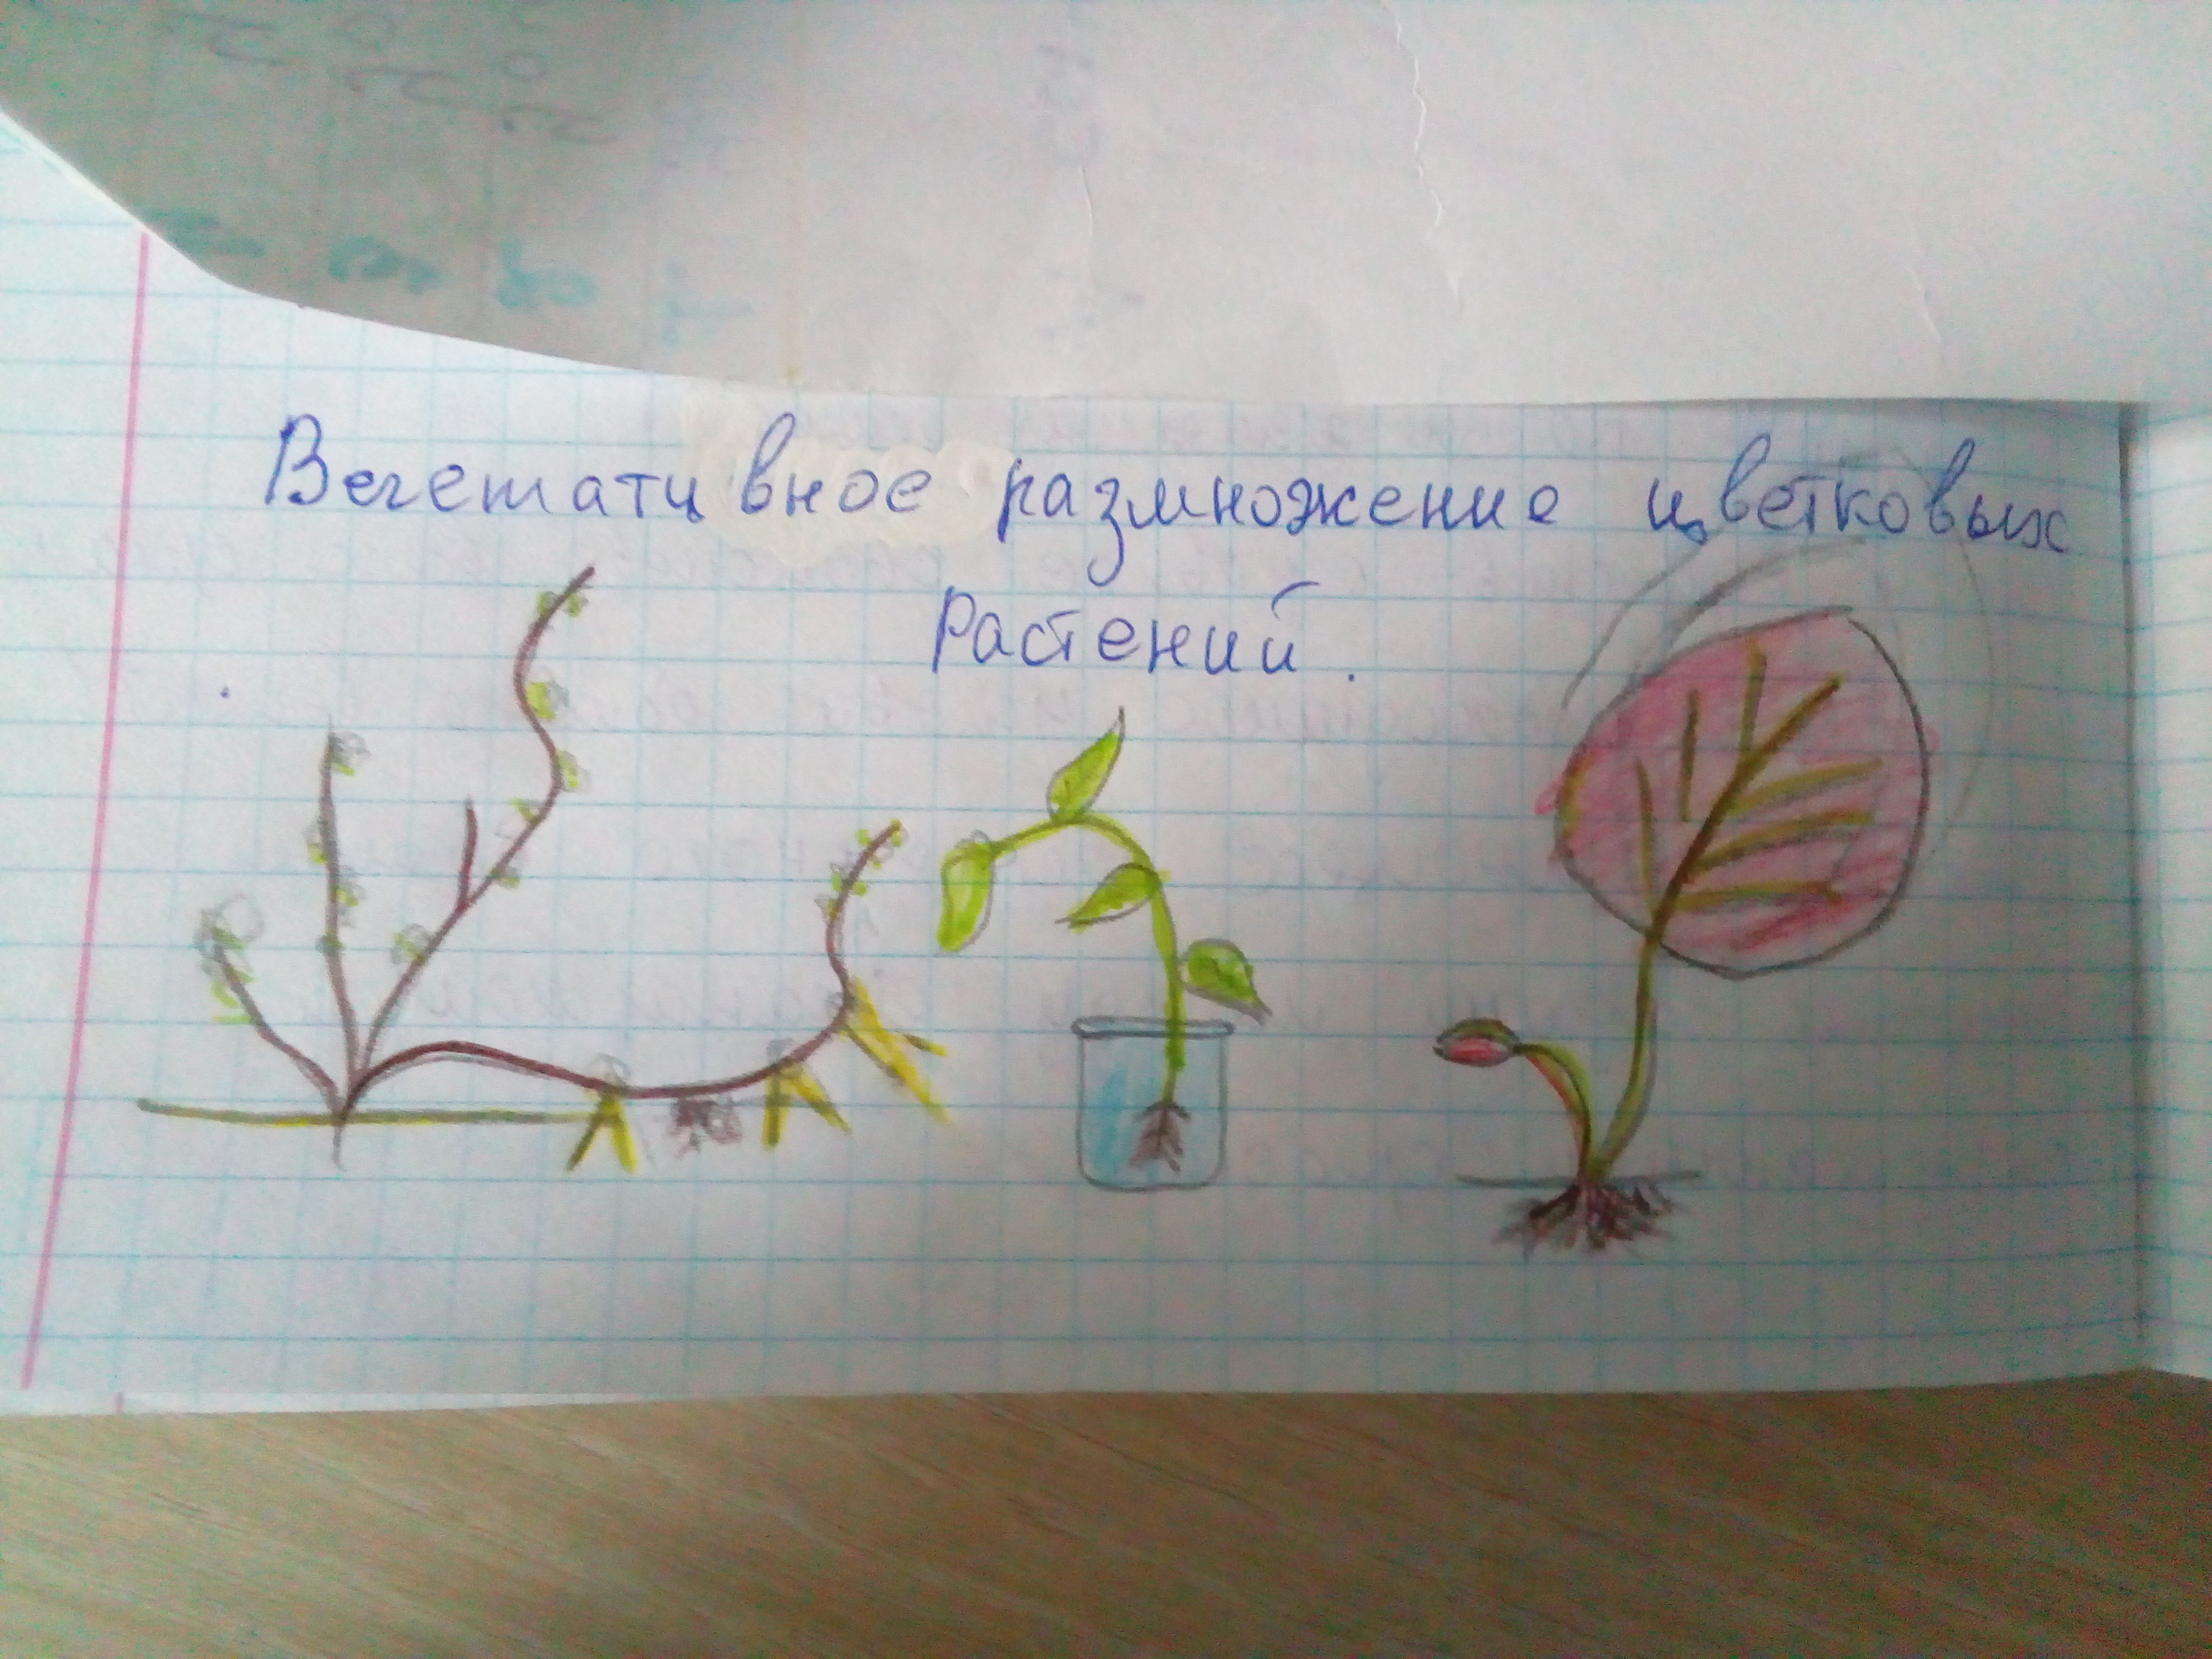 Вегетативное размножение цветковых
растений.